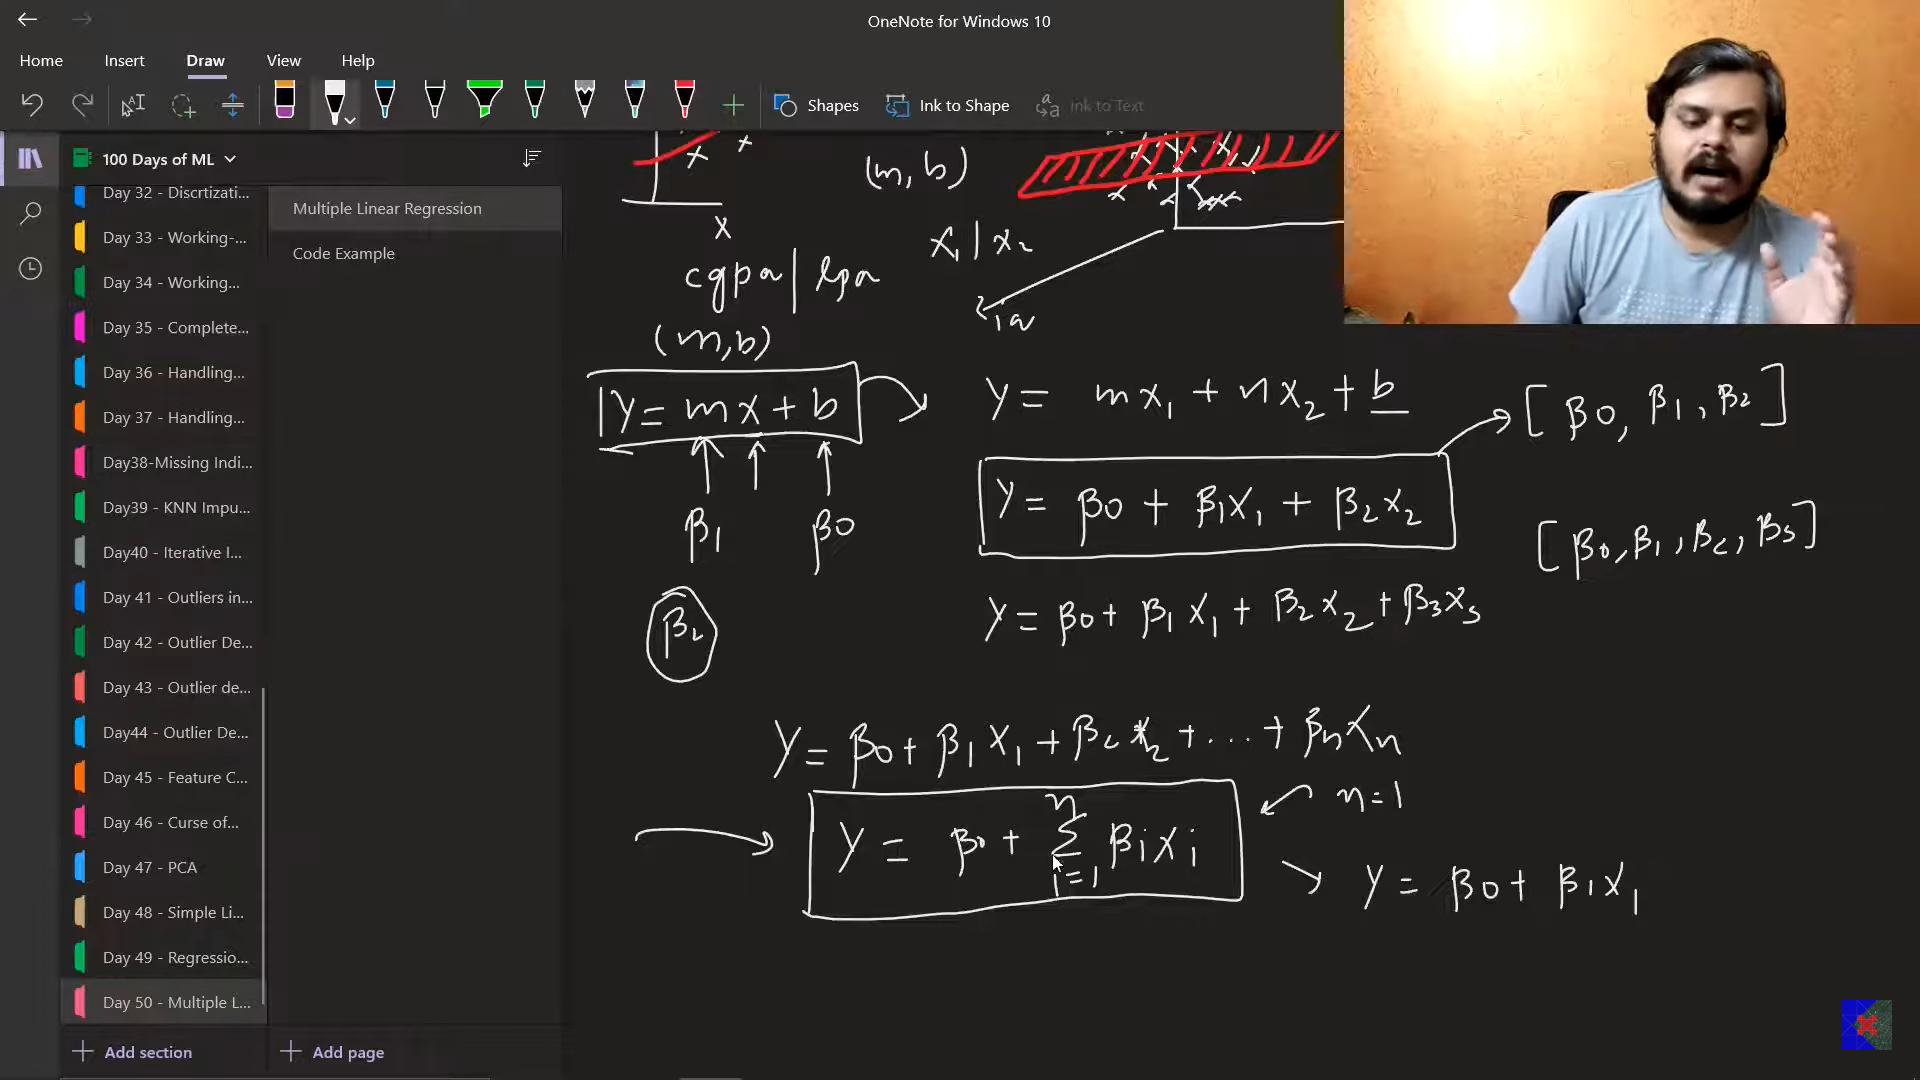 OneNote for Windows 10
Home Insert Draw View Help
Shapes Ink to Shape Ink to Text
100 Days of ML
Day 32 - Discrtizati...
Day 33 - Working-...
Day 34 - Working...
Day 35 - Complete...
Day 36 - Handling...
Day 37 - Handling...
Day38-Missing Indi...
Day39 - KNN Impu...
Day40 - Iterative I...
Day 41 - Outliers in...
Day 42 - Outlier De...
Day 43 - Outlier de...
Day44 - Outlier De...
Day 45 - Feature C...
Day 46 - Curse of...
Day 47 - PCA
Day 48 - Simple Li...
Day 49 - Regressio...
Day 50 - Multiple L...
Add section
Multiple Linear Regression
Code Example
Add page
(m, b)
x
x₁ | x₂
cgpa | lpa
iq
(m,b)
Y = mx + b
β₁ β0
β₂
Y = mx₁ + nx₂ + b
[β0, β₁, β₂]
Y = β0 + β₁x₁ + β₂x₂
[β0, β₁, β₂, β₃]
Y = β0 + β₁x₁ + β₂x₂ + β₃x₃
Y = β0 + β₁x₁ + β₂x₂ + ... + βₙxₙ
n=1
n
Y = β0 + Σ βixi
i=1
Y = β0 + β₁x₁